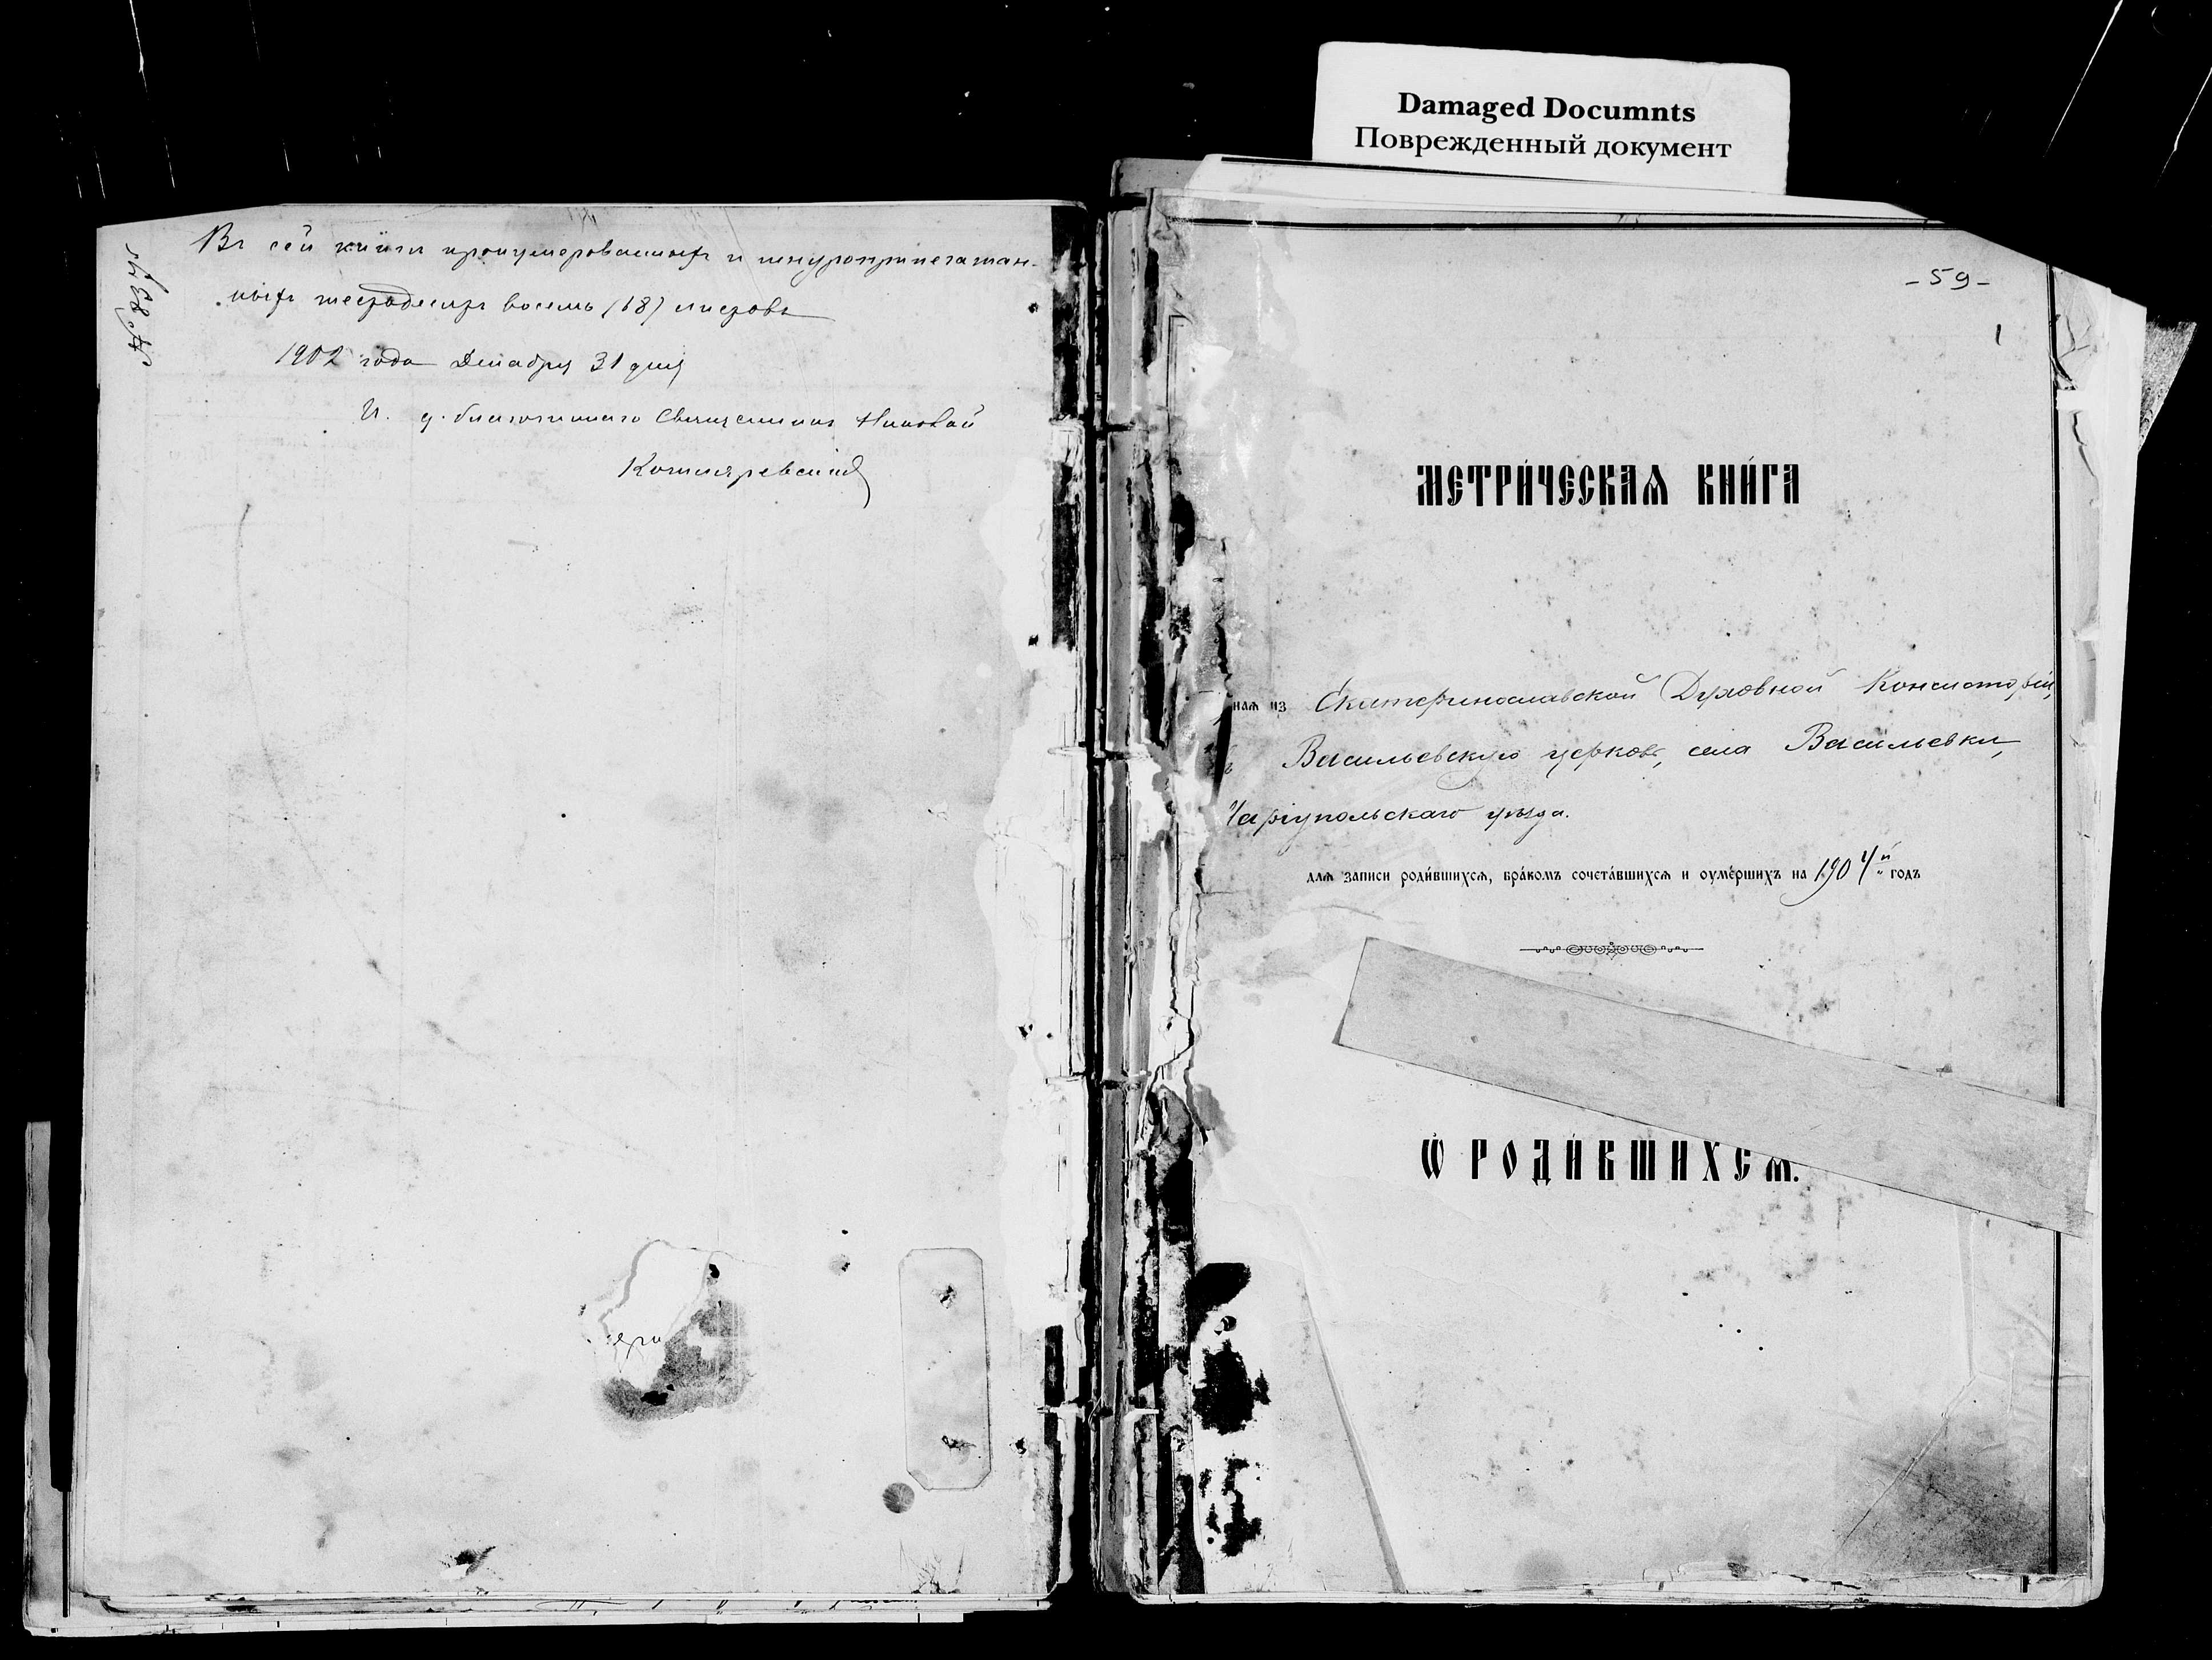 Damaged Documnts
Поврежденный документ
Въ сей книгѣ пронумерованныхъ и шнуроприпечатан-
ныхъ шестьдесятъ восемь (68) листовъ
1902 года Декабря 31 дня
И. д. благочиннаго Священникъ Николай
Котляревскій
-59-
1
МЕТРИ́ЧЕСКАѦ КНИ́ГА
наѧ из Екатеринославской Духовной Консисторіи,
Васильевскую церковь, села Васильевки,
Маріупольскаго уѣзда.
длѧ записи роди́вшихсѧ, бра́комъ сочета́вшихсѧ и оуме́ршихъ на 1904й годъ
Ѡ РОДИ́ВШИХСѦ.